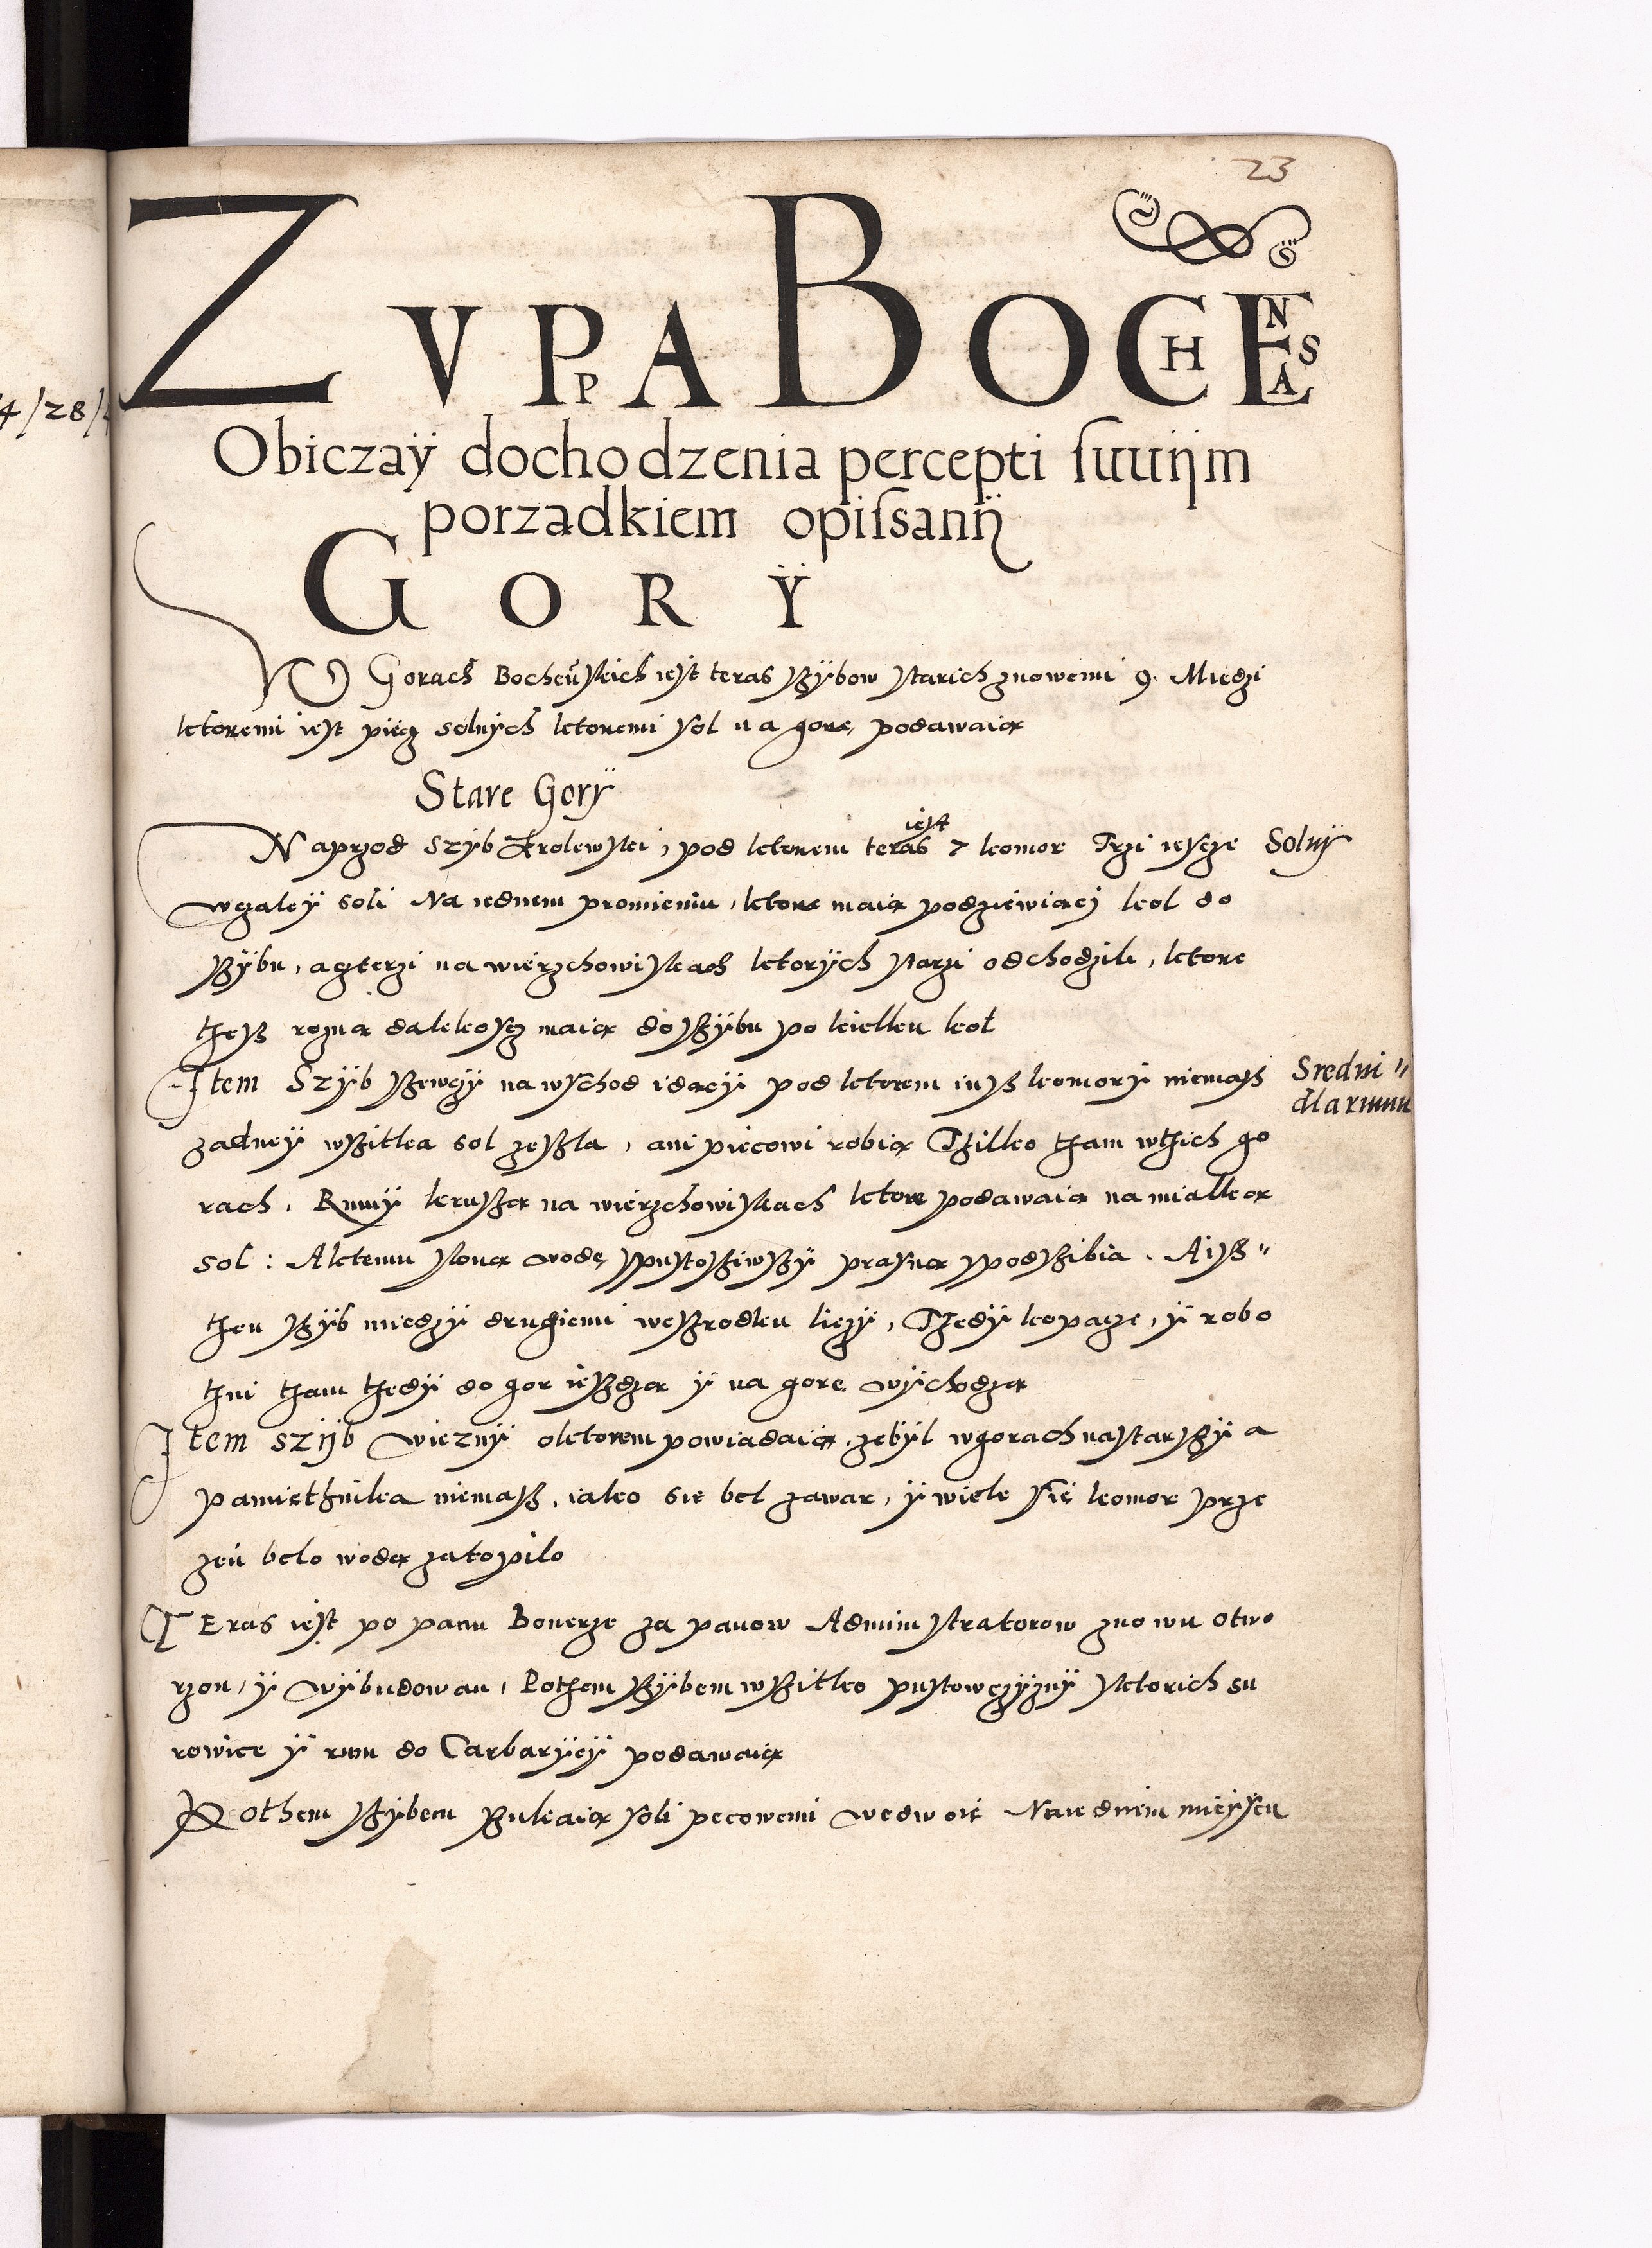 23
ZVPPA BOCHENSA
Obiczaÿ dochodzenia percepti suuijm
porzadkiem opissanÿ
GORŸ
W Gorach Bochenskich iest teras szÿbow starich znowemi 9. Miedzi
ktoremi iest piecz solnych ktoremi sol na gore podawaią
Stare Gorÿ
Naprzod Szÿb Krolewski, pod ktorem teras iest 7 komor Trzi iescze
Solnÿ
wczaleÿ soli Na iednem promieniu, ktore maią podziewiąci kol do
szÿbu, aczterzi na wierzchowiskach ktorÿch starzi odchodzili, ktore
thesz rozną dalekoscz maią do szÿbu po kielku kol
Item Szÿb szewczÿ na wschod idacÿ pod ktorem iusz komorÿ niemasz
Sredni
dla rumu
zadneÿ wszitka sol zeszla, ani piecowi robią Thilko tham wthich go
rach, Rumÿ kruszą na wierzchowiskach ktore podawaią na mialką
sol: Aktemu sloną wode spustosziwszÿ prasną spodszibia. Aisz
then szÿb miedzÿ drugiemi weszrodku liezÿ, Thedÿ kopacze, ÿ robo
thni tham thedÿ do gor ieszdzą ÿ na gore wÿchodzą
Item szijb wieznÿ oktorem powiadaią, zebÿl wgorach nastarszÿ a
pamiethnika niemasz, iako sie bel zawar, ÿ wiele sie komor prze
zen belo wodą zatopilo
TEras iest po panu Bonerze za panow Administratorow znowu otwo
rzon, ÿ wÿbudowan, Pothem szÿbem wszitko pustowczÿznÿ sktorich su
rowice ÿ rum do Carbarÿcÿ podawaią
Pothem szÿbem szukaią soli pecowemi wedwoie Na iednem mieÿscu